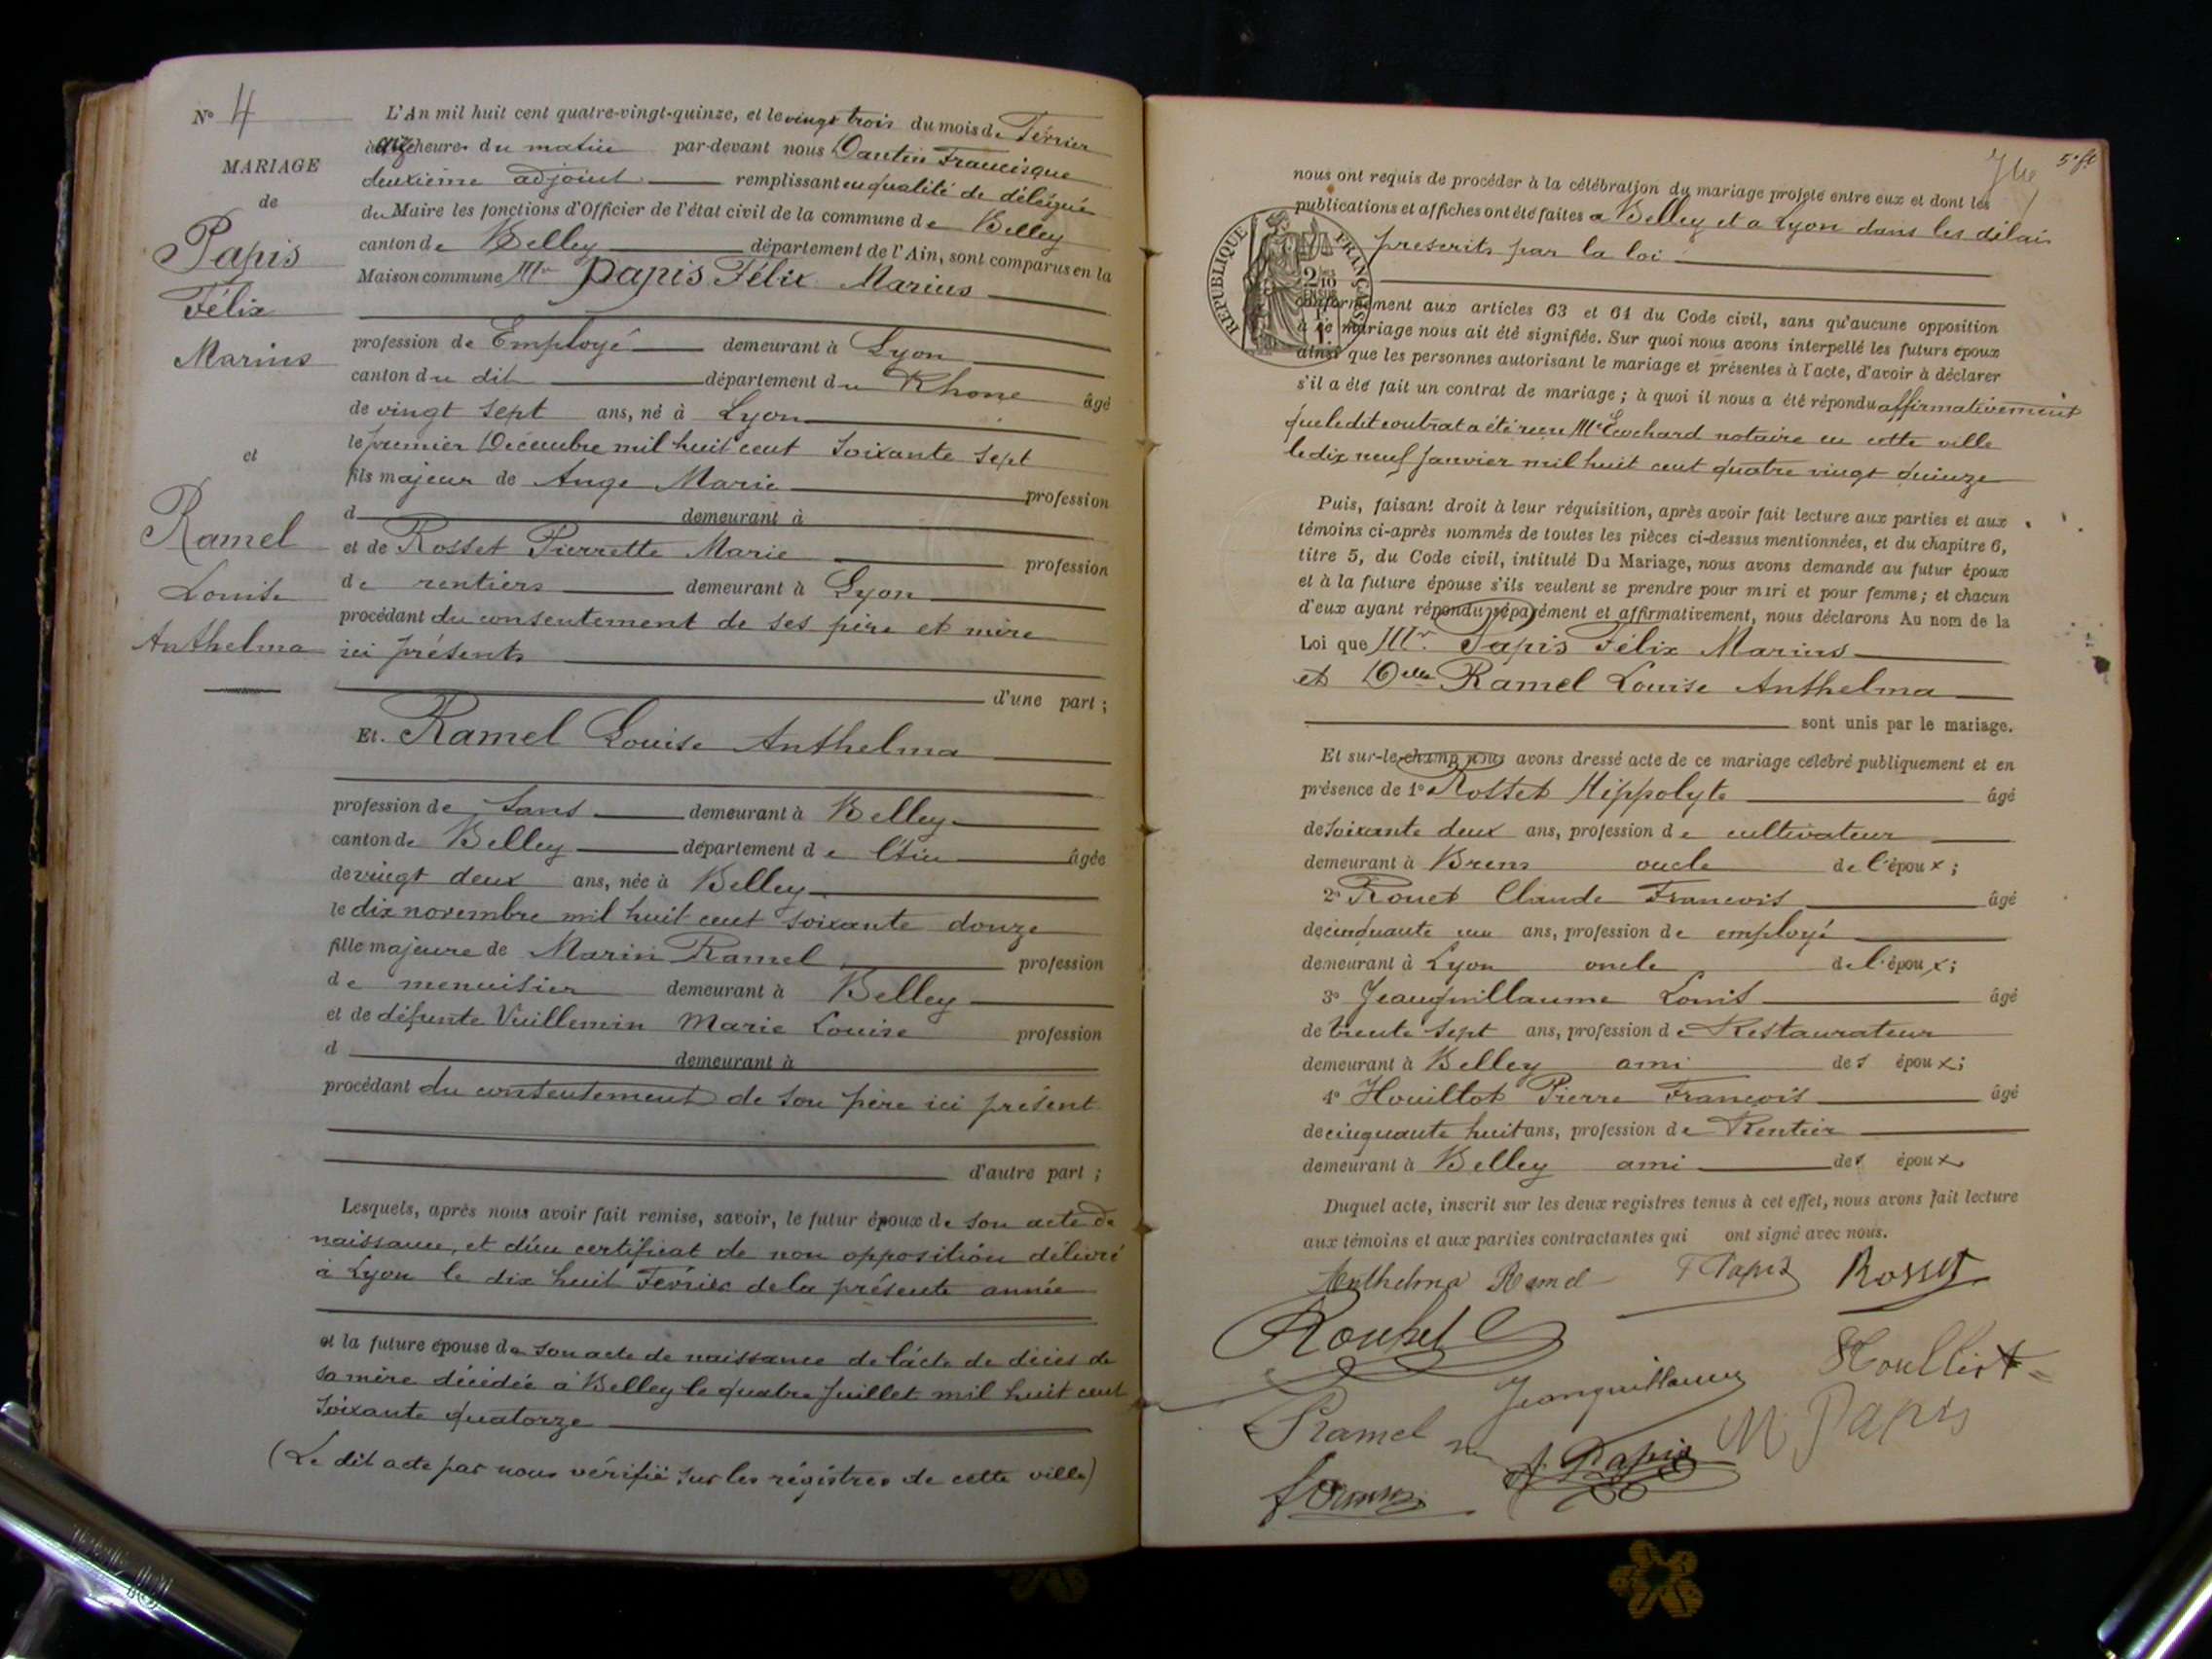 N° 4
MARIAGE
de
Papis
Félix
Marius
et
Ramel
Louise
Anthelma
L'An mil huit cent quatre-vingt-quinze, et le vingt trois du mois de Février
heures du matin par-devant nous Dantin Francisque
deuxième adjoint remplissant en qualité de délégué
du Maire les fonctions d'Officier de l'état civil de la commune de Belley
canton de Belley département de l'Ain, sont comparus en la
Maison commune Mr Papis Félix Marius
profession de Employé demeurant à Lyon
canton du dit département du Rhone âgé
de vingt sept ans, né à Lyon
le premier Décembre mil huit cent soixante sept
fils majeur de Ange Marie profession
d demeurant à
et de Rosset Pierrette Marie profession
de rentiers demeurant à Lyon
procédant du consentement de ses père et mère
ici présents
d'une part ;
Et Ramel Louise Anthelma
profession de sans demeurant à Belley
canton de Belley département de l'Ain âgée
de vingt deux ans, née à Belley
le dix novembre mil huit cent soixante douze
fille majeure de Marin Ramel profession
de menuisier demeurant à Belley
et de défunte Vuillemin Marie Louise profession
d demeurant à
procédant du consentement de son père ici présent
d'autre part ;
Lesquels, après nous avoir fait remise, savoir, le futur époux de son acte de
naissance, et d'un certificat de non opposition délivré
à Lyon le dix huit Février de la présente année
et la future épouse de son acte de naissance de l'acte de décès de
sa mère décédée à Belley le quatre Juillet mil huit cent
soixante quatorze
(Le dit acte par nous vérifié sur les régistres de cette ville)
5e ft
nous ont requis de procéder à la célébration du mariage projeté entre eux et dont les
publications et affiches ont été faites a Belley et a Lyon dans les délais
prescrits par la loi
RÉPUBLIQUE FRANÇAISE
conformément aux articles 63 et 64 du Code civil, sans qu'aucune opposition
à ce mariage nous ait été signifiée. Sur quoi nous avons interpellé les futurs époux
ainsi que les personnes autorisant le mariage et présentes à l'acte, d'avoir à déclarer
s'il a été fait un contrat de mariage ; à quoi il nous a été répondu affirmativement
que le dit contrat a été recu Me notaire en cette ville
le dix neuf Janvier mil huit cent quatre vingt quinze
Puis, faisant droit à leur réquisition, après avoir fait lecture aux parties et aux
témoins ci-après nommés de toutes les pièces ci-dessus mentionnées, et du chapitre 6,
titre 5, du Code civil, intitulé Du Mariage, nous avons demandé au futur époux
et à la future épouse s'ils veulent se prendre pour mari et pour femme ; et chacun
d'eux ayant répondu séparément et affirmativement, nous déclarons Au nom de la
Loi que Mr. Papis Félix Marius
et Delle Ramel Louise Anthelma
sont unis par le mariage.
Et sur-le-champ nous avons dressé acte de ce mariage célébré publiquement et en
présence de 1° Rosset Hippolyte âgé
de soixante deux ans, profession de cultivateur
demeurant à Brens oncle de l'époux ;
2° Rouet Claude Francois âgé
de cinquante un ans, profession de employé
demeurant à Lyon oncle de l'époux ;
3° Jeanguillaume Louis âgé
de trente sept ans, profession de Restaurateur
demeurant à Belley ami des époux ;
4° Houillot Pierre François âgé
de cinquante huit ans, profession de Rentier
demeurant à Belley ami des époux
Duquel acte, inscrit sur les deux registres tenus à cet effet, nous avons fait lecture
aux témoins et aux parties contractantes qui ont signé avec nous.
Anthelma Ramel F Papis Rosset
Jeanguillaume
Ramel A. Papis M Papis